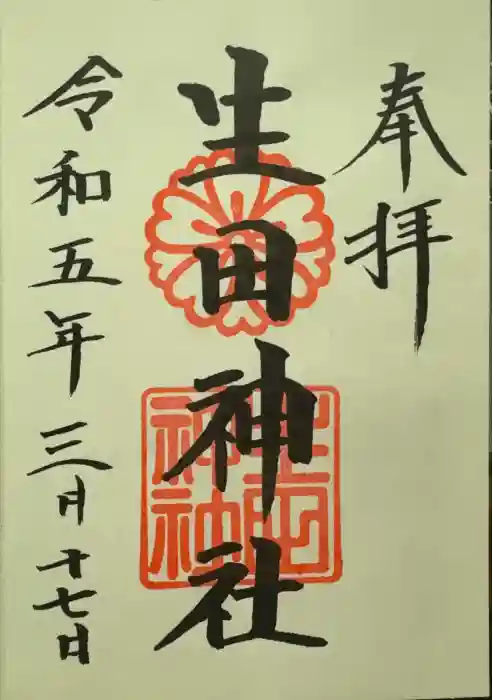 奉拝
生田神社
生田神社
令和五年三月十七日